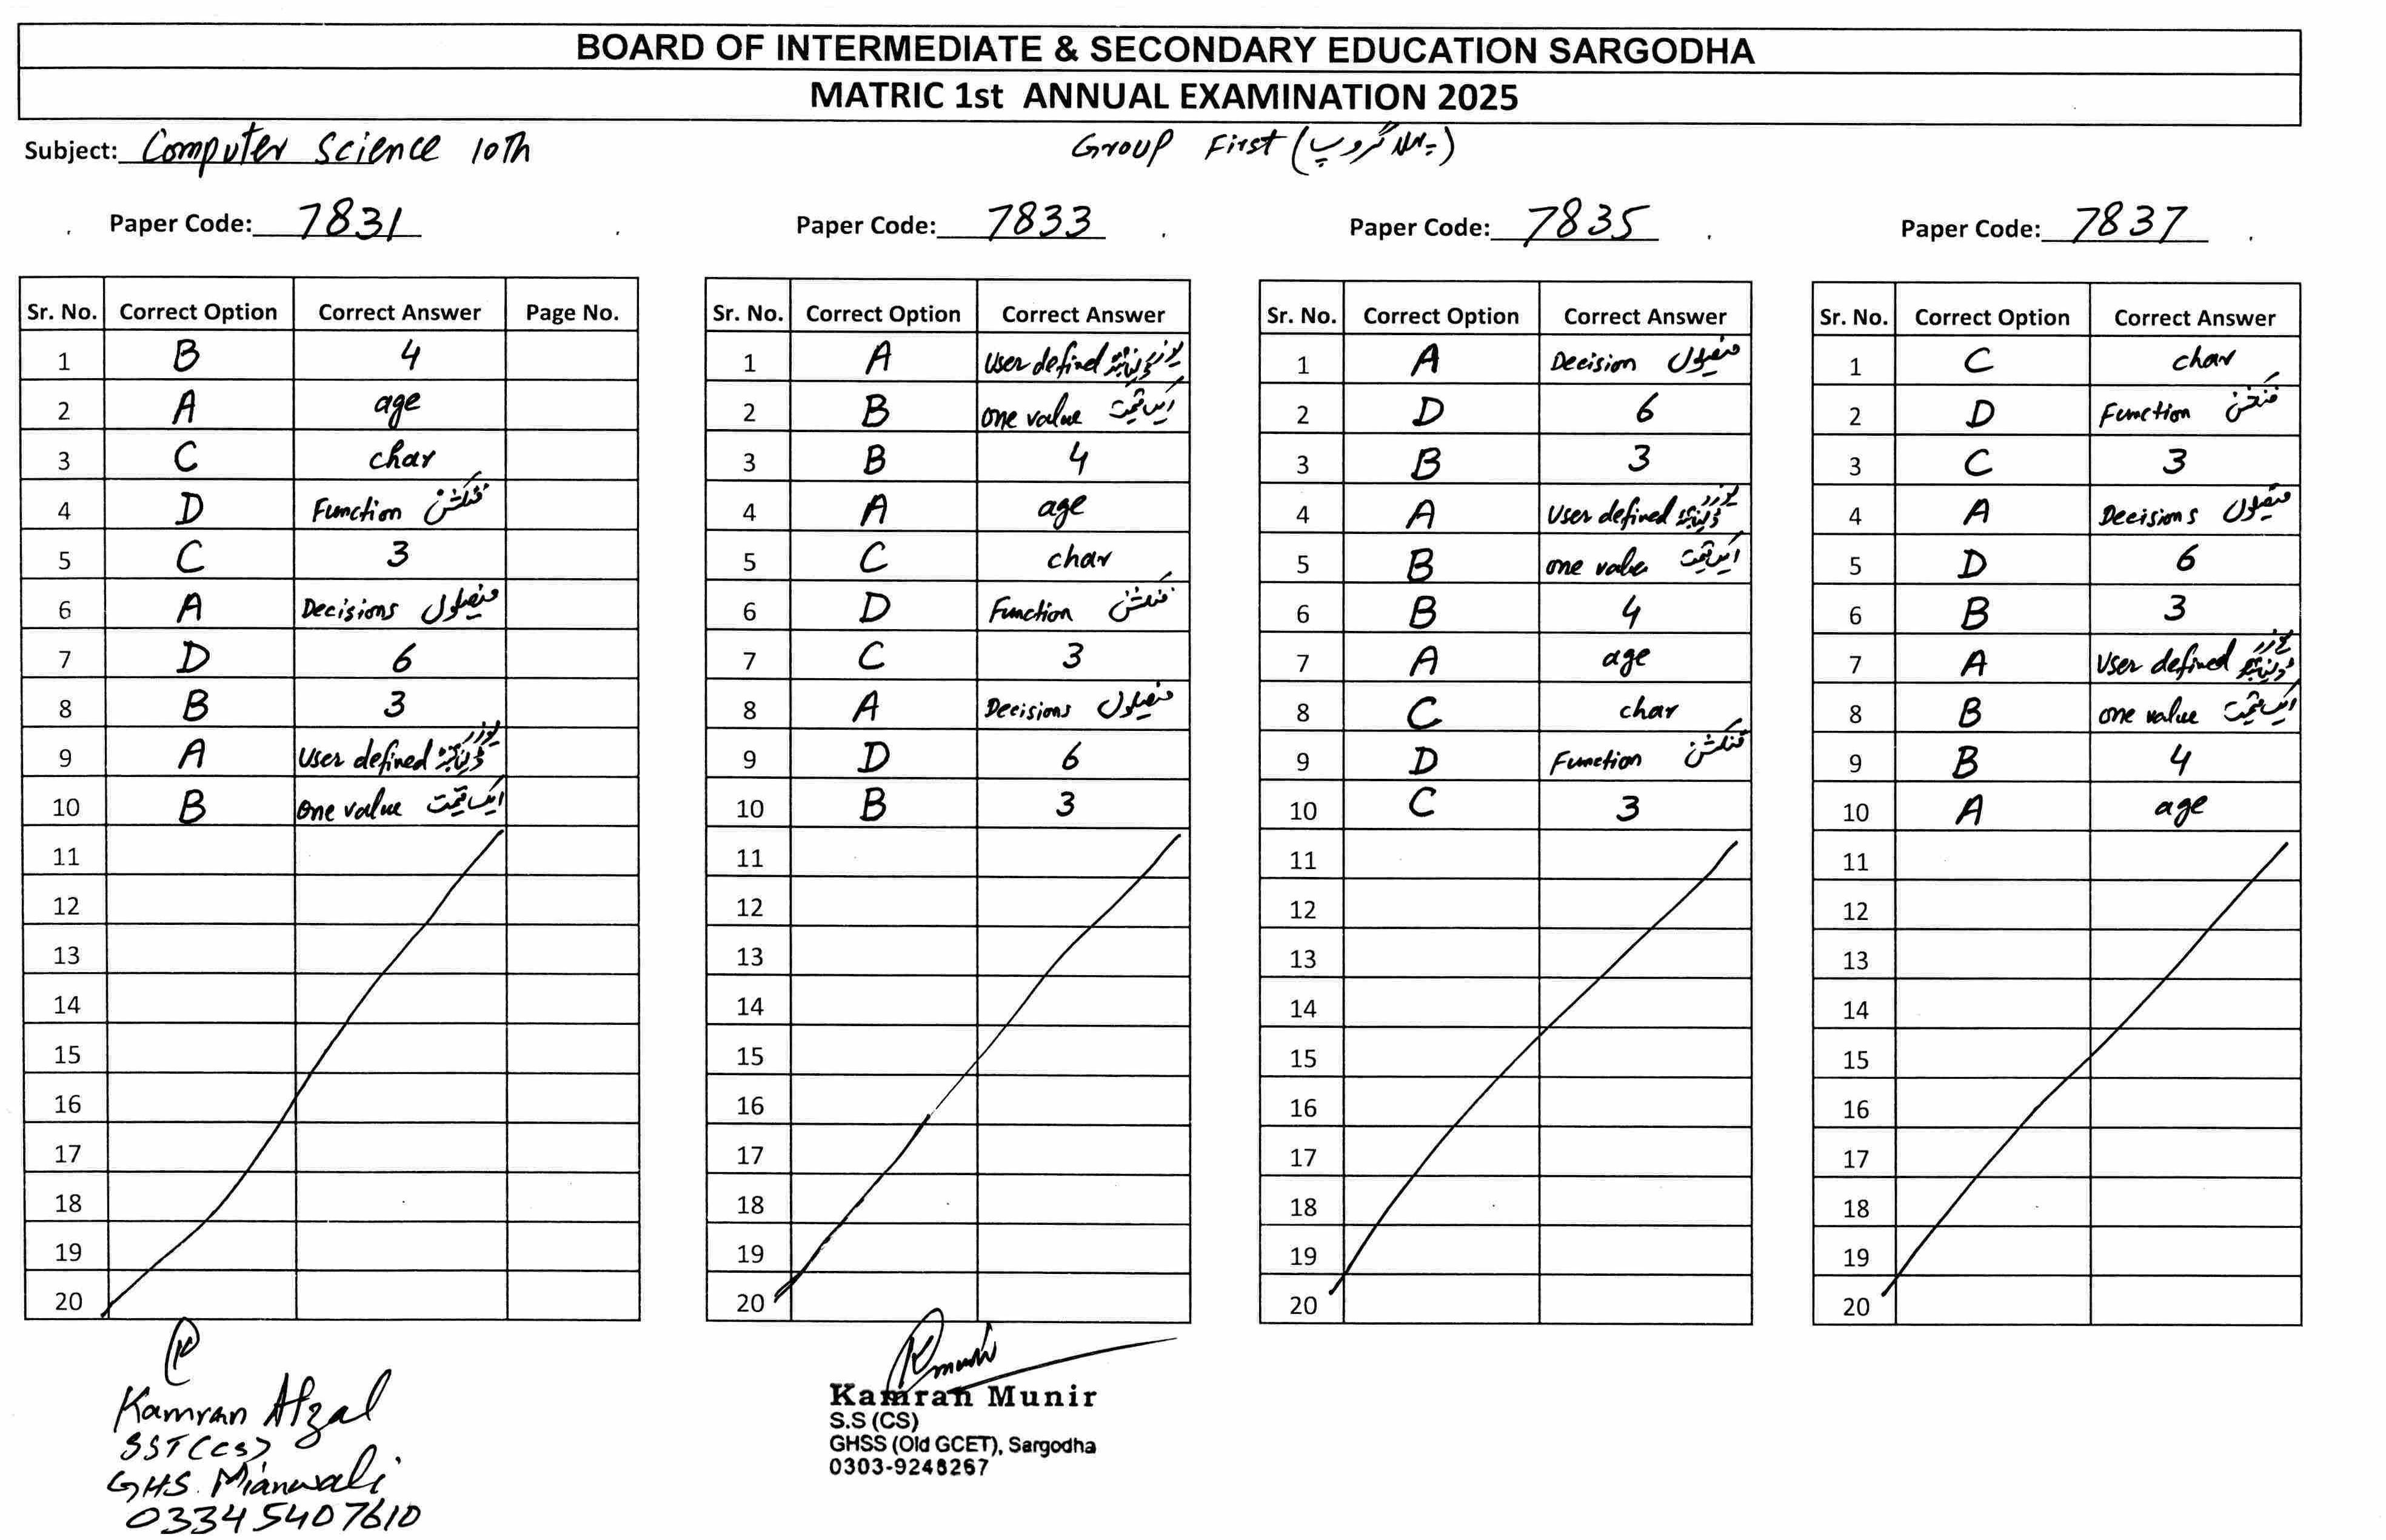 BOARD OF INTERMEDIATE & SECONDARY EDUCATION SARGODHA
MATRIC 1st ANNUAL EXAMINATION 2025
Subject: Computer Science 10th
Group First (پہلا گروپ)
Paper Code: 7831
Sr. No. Correct Option Correct Answer Page No.
1 B 4
2 A age
3 C char
4 D Function فنکشن
5 C 3
6 A Decisions فیصلوں
7 D 6
8 B 3
9 A User defined یوزر ڈیفائنڈ
10 B One value ایک قیمت
11
12
13
14
15
16
17
18
19
20
Paper Code: 7833
Sr. No. Correct Option Correct Answer
1 A User defined یوزر ڈیفائنڈ
2 B one value ایک قیمت
3 B 4
4 A age
5 C char
6 D Function فنکشن
7 C 3
8 A Decisions فیصلوں
9 D 6
10 B 3
11
12
13
14
15
16
17
18
19
20
Paper Code: 7835
Sr. No. Correct Option Correct Answer
1 A Decision فیصلوں
2 D 6
3 B 3
4 A User defined یوزر ڈیفائنڈ
5 B one value ایک قیمت
6 B 4
7 A age
8 C char
9 D Function فنکشن
10 C 3
11
12
13
14
15
16
17
18
19
20
Paper Code: 7837
Sr. No. Correct Option Correct Answer
1 C char
2 D Function فنکشن
3 C 3
4 A Decisions فیصلوں
5 D 6
6 B 3
7 A User defined یوزر ڈیفائنڈ
8 B one value ایک قیمت
9 B 4
10 A age
11
12
13
14
15
16
17
18
19
20
Kamran Afzal
SST (CS)
GHS. Mianwali
03345407610
Kamran Munir
S.S (CS)
GHSS (Old GCET), Sargodha
0303-9248267